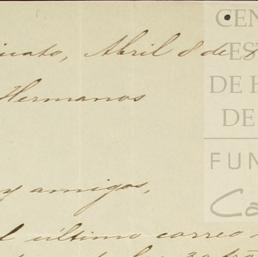 Abril 8 de
Hermanos
y amigos,
el último correo
CEN
EST
DE H
DE
FUN
Ca